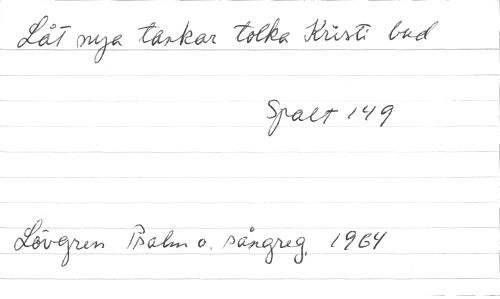 Låt nya tankar tolka Kristi bud
Spalt 149
Lövgren Psalm o. sångreg. 1964